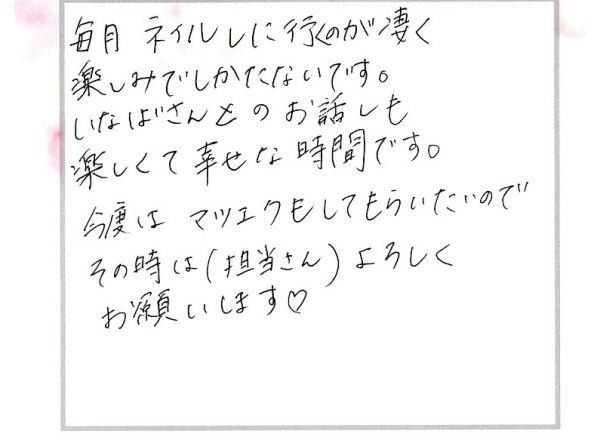 毎月 ネイルしに行くのが凄く
楽しみでしかたないです。
いなばさんとのお話しも
楽しくて幸せな時間です。
今度は マツエクもしてもらいたいので
その時は(担当さん)よろしく
お願いします♡